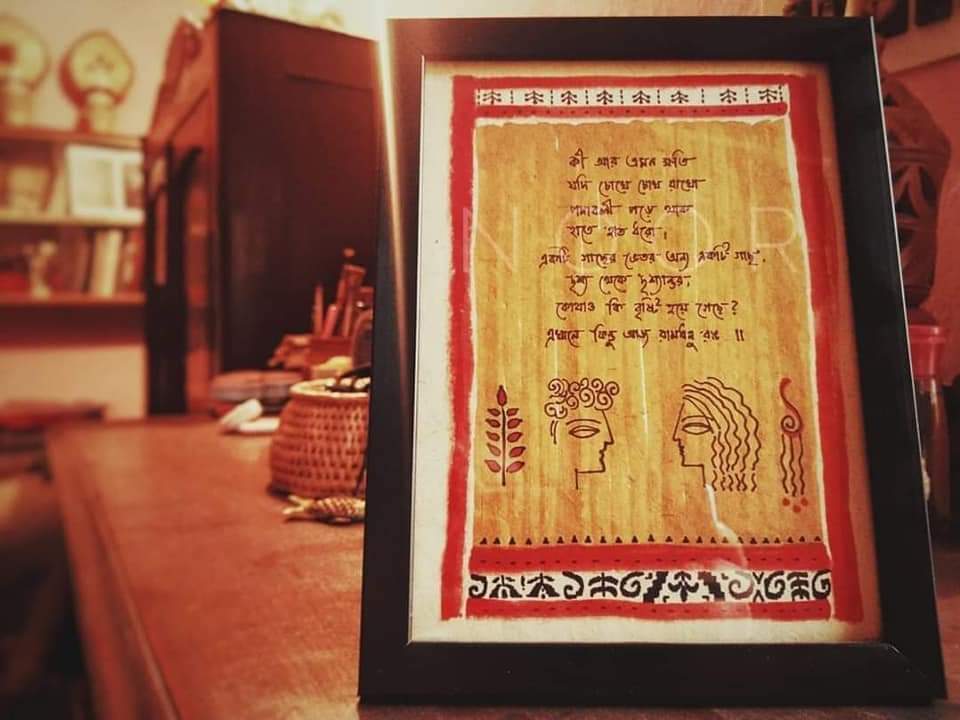 কী আর এমন ক্ষতি
যদি চোখে চোখ রাখো
পদাবলী পড়ে থাক
হাতে হাত ধরো।
একটি গাছের ভেতর অন্য একটি গাছ,
দৃশ্য থেকে দৃশ্যান্তর,
কোথাও কি বৃষ্টি হয়ে গেছে?
এখানে কিন্তু আজ রামধনু রঙ ॥
NOOR